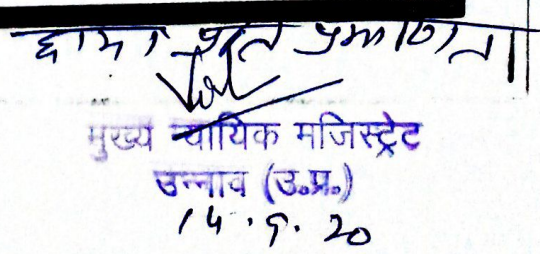 छाया प्रति प्रमाणित
मुख्य न्यायिक मजिस्ट्रेट
उन्नाव (उ.प्र.)
14.9.20